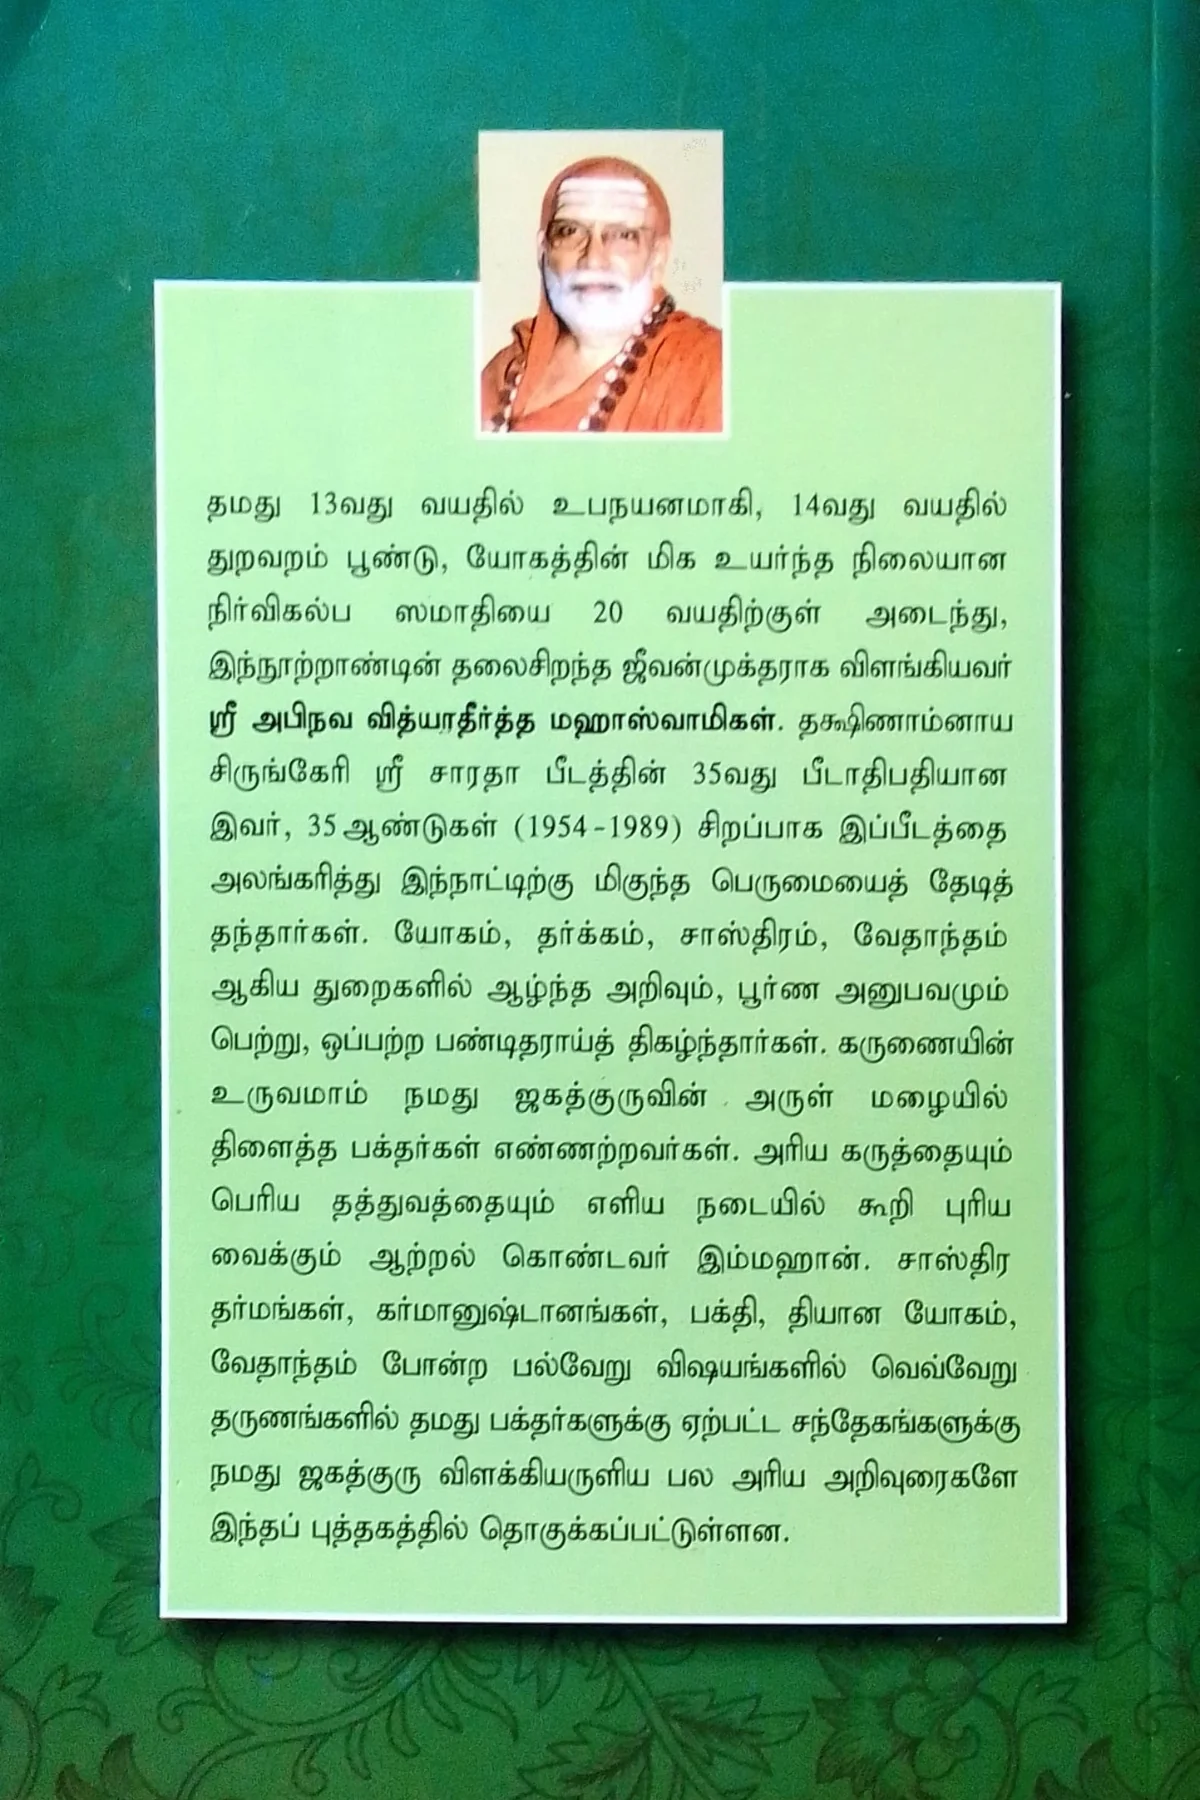 தமது 13வது வயதில் உபநயனமாகி, 14வது வயதில்
துறவறம் பூண்டு, யோகத்தின் மிக உயர்ந்த நிலையான
நிர்விகல்ப ஸமாதியை 20 வயதிற்குள் அடைந்து,
இந்நூற்றாண்டின் தலைசிறந்த ஜீவன்முக்தராக விளங்கியவர்
ஸ்ரீ அபிநவ வித்யாதீர்த்த மஹாஸ்வாமிகள். தக்ஷிணாம்னாய
சிருங்கேரி ஸ்ரீ சாரதா பீடத்தின் 35வது பீடாதிபதியான
இவர், 35 ஆண்டுகள் (1954-1989) சிறப்பாக இப்பீடத்தை
அலங்கரித்து இந்நாட்டிற்கு மிகுந்த பெருமையைத் தேடித்
தந்தார்கள். யோகம், தர்க்கம், சாஸ்திரம், வேதாந்தம்
ஆகிய துறைகளில் ஆழ்ந்த அறிவும், பூர்ண அனுபவமும்
பெற்று, ஒப்பற்ற பண்டிதராய்த் திகழ்ந்தார்கள். கருணையின்
உருவமாம் நமது ஜகத்குருவின் அருள் மழையில்
திளைத்த பக்தர்கள் எண்ணற்றவர்கள். அரிய கருத்தையும்
பெரிய தத்துவத்தையும் எளிய நடையில் கூறி புரிய
வைக்கும் ஆற்றல் கொண்டவர் இம்மஹான். சாஸ்திர
தர்மங்கள், கர்மானுஷ்டானங்கள், பக்தி, தியான யோகம்,
வேதாந்தம் போன்ற பல்வேறு விஷயங்களில் வெவ்வேறு
தருணங்களில் தமது பக்தர்களுக்கு ஏற்பட்ட சந்தேகங்களுக்கு
நமது ஜகத்குரு விளக்கியருளிய பல அரிய அறிவுரைகளே
இந்தப் புத்தகத்தில் தொகுக்கப்பட்டுள்ளன.